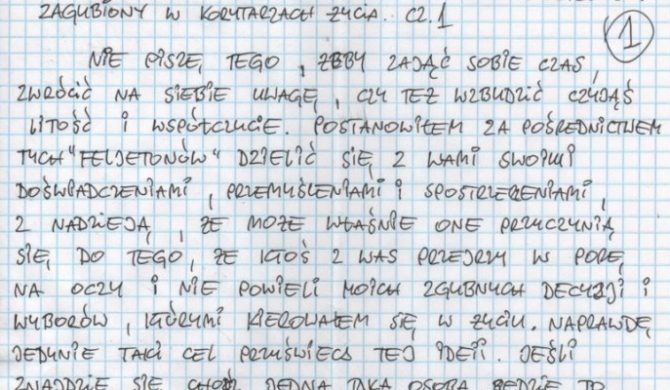 ZAGUBIONY W KORYTARZACH ŻYCIA. CZ.1
1
NIE PISZĘ TEGO, ŻEBY ZAJĄĆ SOBIE CZAS,
ZWRÓCIĆ NA SIEBIE UWAGĘ, CZY TEŻ WZBUDZIĆ CZYJĄŚ
LITOŚĆ I WSPÓŁCZUCIE. POSTANOWIŁEM ZA POŚREDNICTWEM
TYCH "FELJETONÓW" DZIELIĆ SIĘ Z WAMI SWOIMI
DOŚWIADCZENIAMI, PRZEMYŚLENIAMI I SPOSTRZEŻENIAMI,
Z NADZIEJĄ, ŻE MOŻE WŁAŚNIE ONE PRZYCZYNIĄ
SIĘ DO TEGO, ŻE KTOŚ Z WAS PRZEJRZY W PORĘ
NA OCZY I NIE POWIELI MOICH ZGUBNYCH DECYZJI I
WYBORÓW, KTÓRYMI KIEROWAŁEM SIĘ W ŻYCIU. NAPRAWDĘ
JEDYNIE TAKI CEL PRZYŚWIECA TEJ IDEII. JEŚLI
ZNAJDZIE SIĘ CHOĆ JEDNA TAKA OSOBA BĘDZIE TO